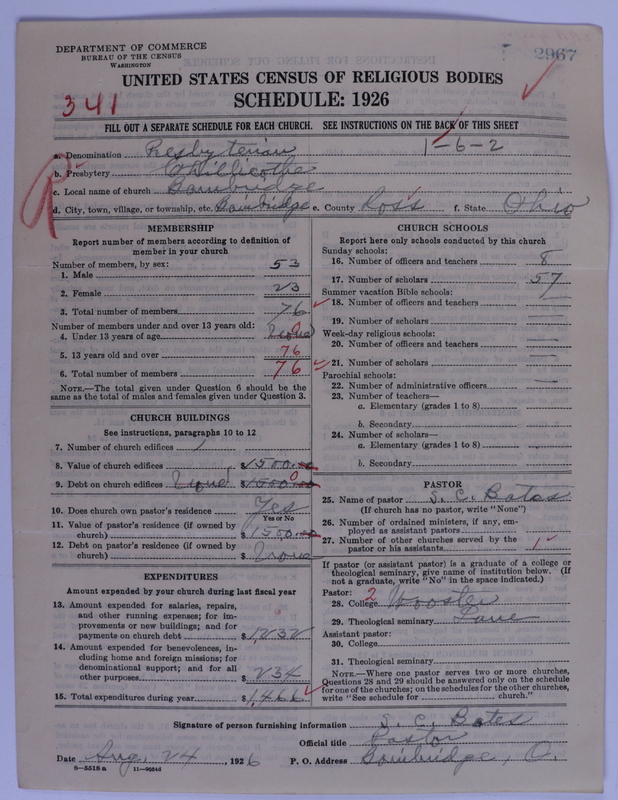 DEPARTMENT OF COMMERCE
BUREAU OF THE CENSUS
WASHINGTON
2967
UNITED STATES CENSUS OF RELIGIOUS BODIES
SCHEDULE: 1926
341
FILL OUT A SEPARATE SCHEDULE FOR EACH CHURCH. SEE INSTRUCTIONS ON THE BACK OF THIS SHEET
1-6-2
a. Denomination Presbyterian
b. Presbytery Chillicothe
c. Local name of church Bainbridge
d. City, town, village, or township, etc. Bainbridge e. County Ross f. State Ohio
MEMBERSHIP
Report number of members according to definition of member in your church
Number of members, by sex:
1. Male 53
2. Female 23
3. Total number of members 76
Number of members under and over 13 years old:
4. Under 13 years of age None 0
5. 13 years old and over 76
6. Total number of members 76
NOTE.—The total given under Question 6 should be the same as the total of males and females given under Question 3.
CHURCH BUILDINGS
See instructions, paragraphs 10 to 12
7. Number of church edifices 1
8. Value of church edifices $1500.00
9. Debt on church edifices None $1500.00 0
10. Does church own pastor's residence? Yes
Yes or No
11. Value of pastor's residence (if owned by church) $1500.00
12. Debt on pastor's residence (if owned by church) $None
EXPENDITURES
Amount expended by your church during last fiscal year
13. Amount expended for salaries, repairs, and other running expenses; for improvements or new buildings; and for payments on church debt $1232
14. Amount expended for benevolences, including home and foreign missions; for denominational support; and for all other purposes $234
15. Total expenditures during year $1466
CHURCH SCHOOLS
Report here only schools conducted by this church
Sunday schools:
16. Number of officers and teachers 8
17. Number of scholars 57
Summer vacation Bible schools:
18. Number of officers and teachers —
19. Number of scholars —
Week-day religious schools:
20. Number of officers and teachers —
21. Number of scholars —
Parochial schools:
22. Number of administrative officers —
23. Number of teachers—
a. Elementary (grades 1 to 8)
b. Secondary —
24. Number of scholars—
a. Elementary (grades 1 to 8) —
b. Secondary —
PASTOR
25. Name of pastor S. C. Bates
(If church has no pastor, write "None")
26. Number of ordained ministers, if any, employed as assistant pastors
27. Number of other churches served by the pastor or his assistants 1
If pastor (or assistant pastor) is a graduate of a college or theological seminary, give name of institution below. (If not a graduate, write "No" in the space indicated.)
Pastor: 2
28. College Wooster
29. Theological seminary Lane
Assistant pastor:
30. College
31. Theological seminary
NOTE.—Where one pastor serves two or more churches, Questions 28 and 29 should be answered only on the schedule for one of the churches; on the schedules for the other churches, write "See schedule for church."
Signature of person furnishing information S. C. Bates
Official title Pastor
Date Aug. 24, 1926 P. O. Address Bainbridge, O.
8—5518 a 11—9024d